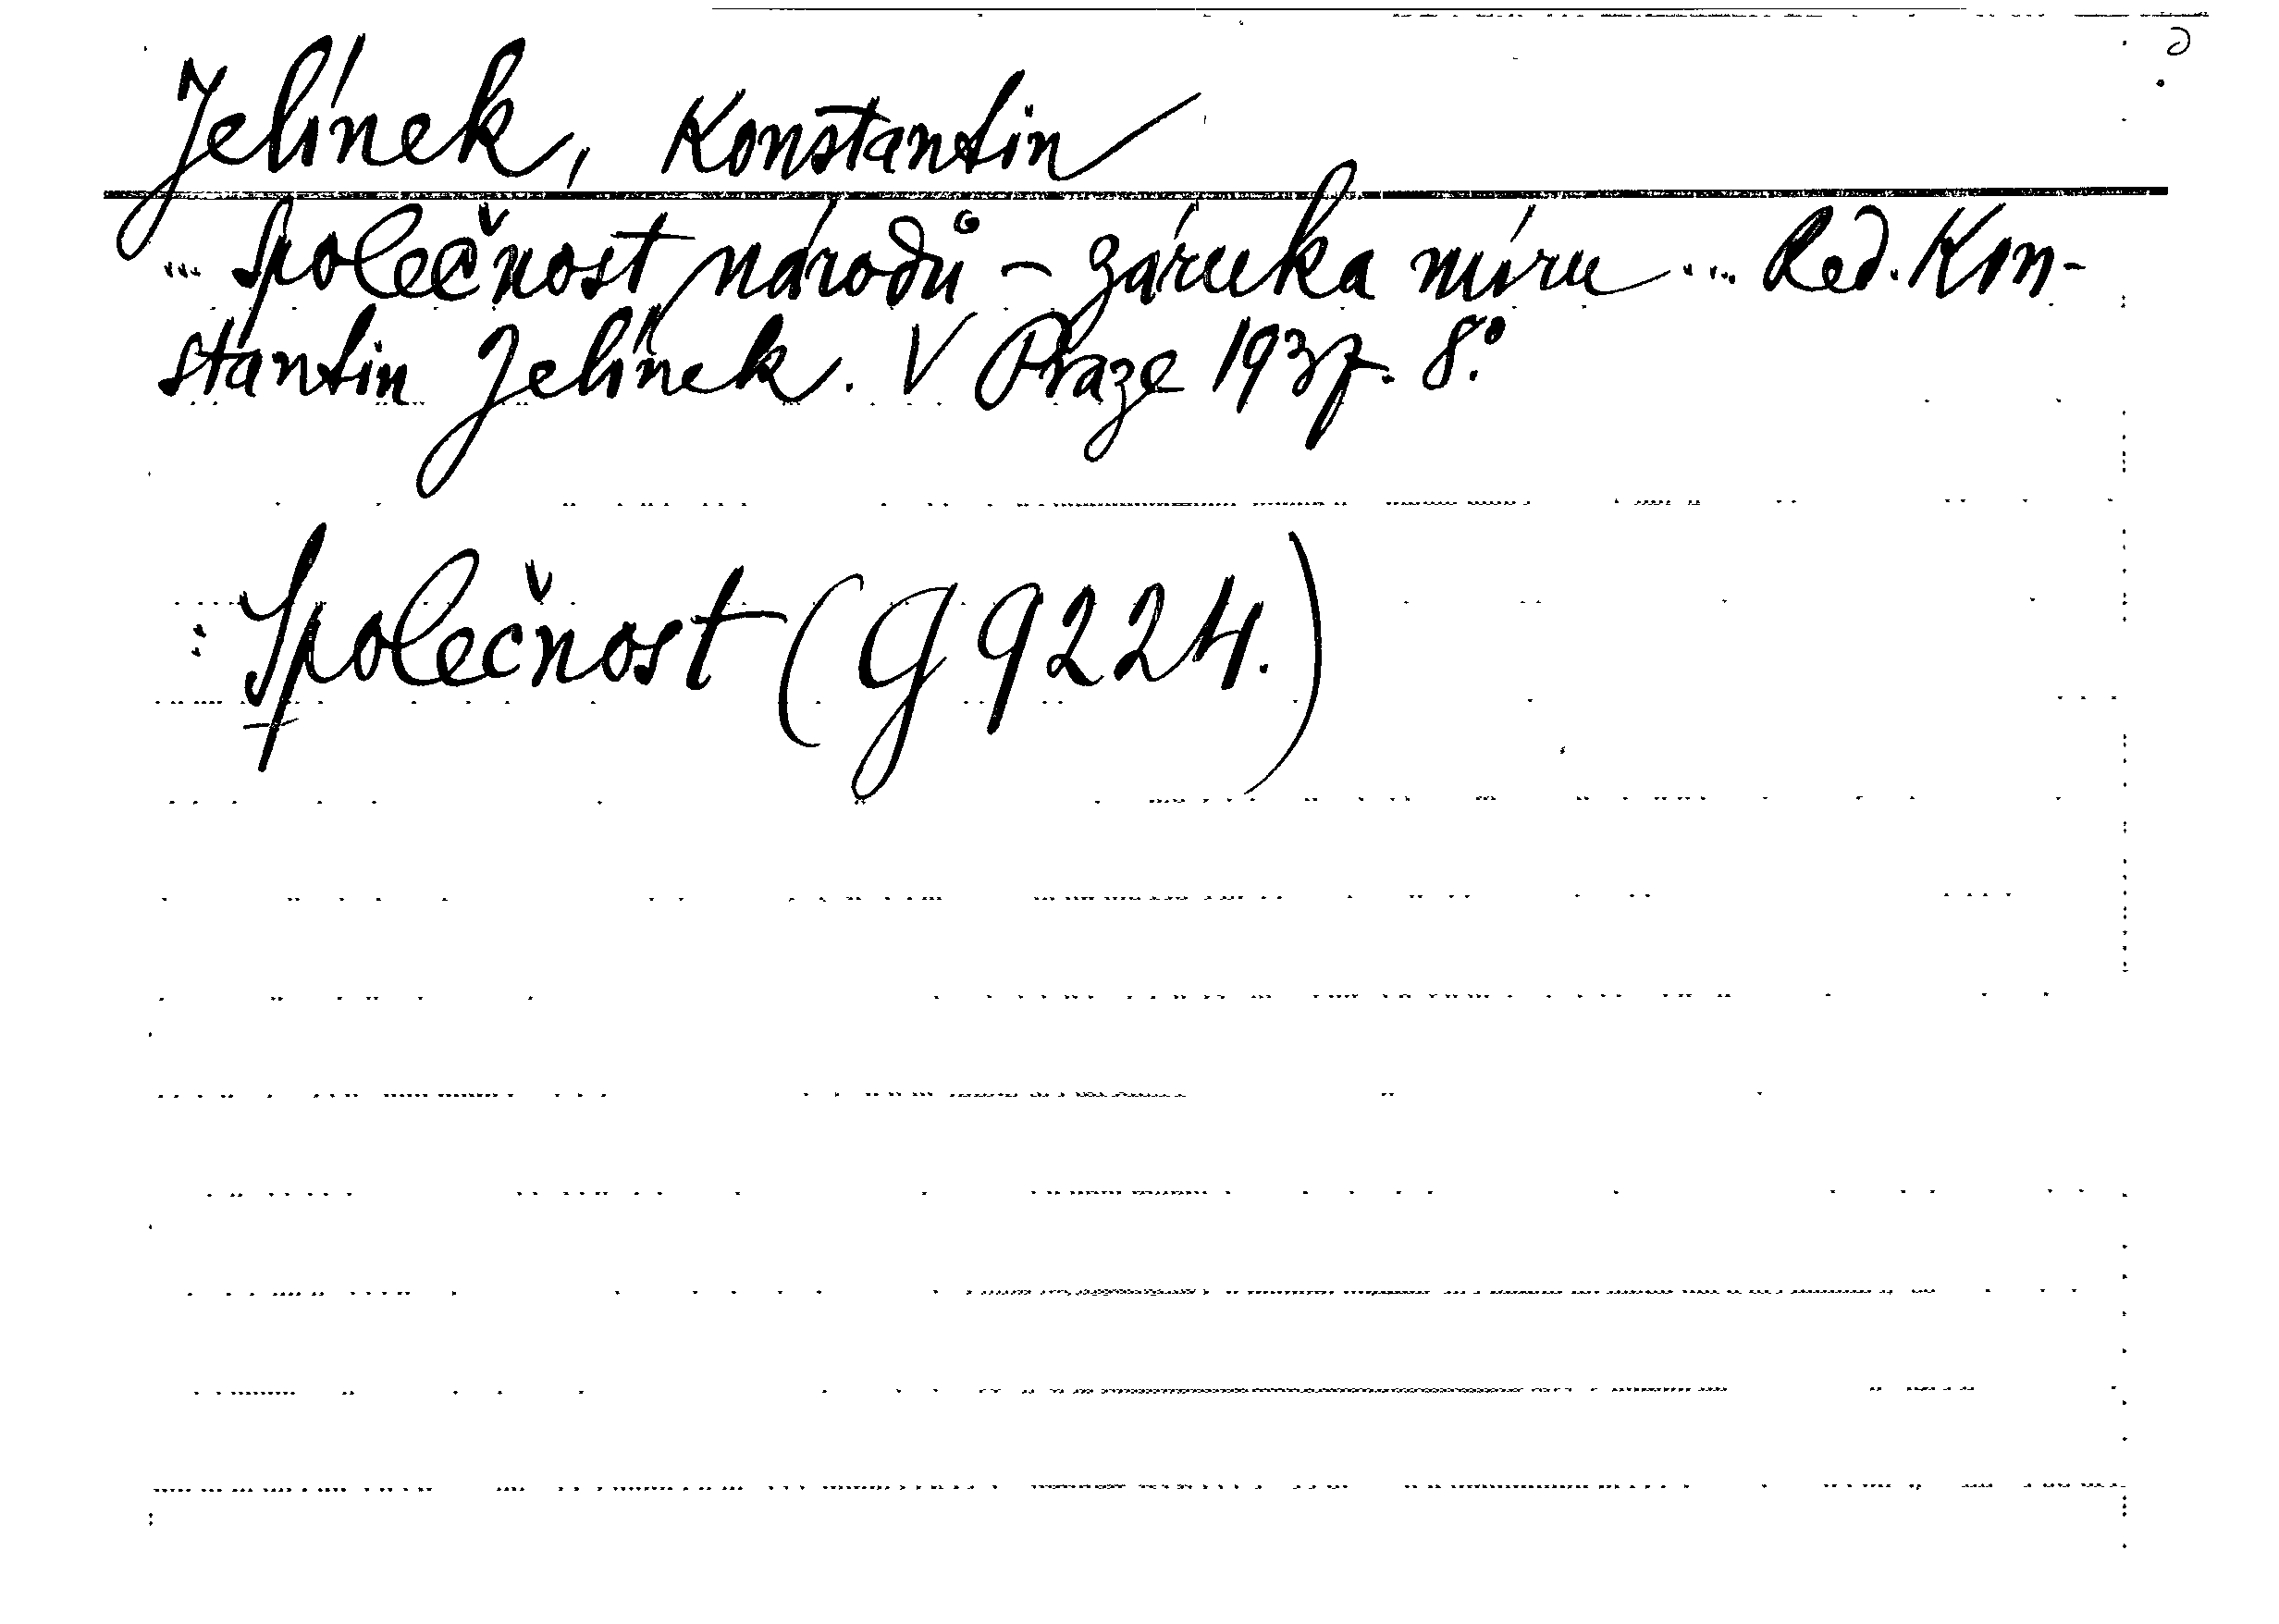 Jelínek, Konstantin
... Společnost národů - záruka míru ... Red. Kon-
stantin Jelínek. V Praze 1937. 8.°
: Společnost (G 9224.)